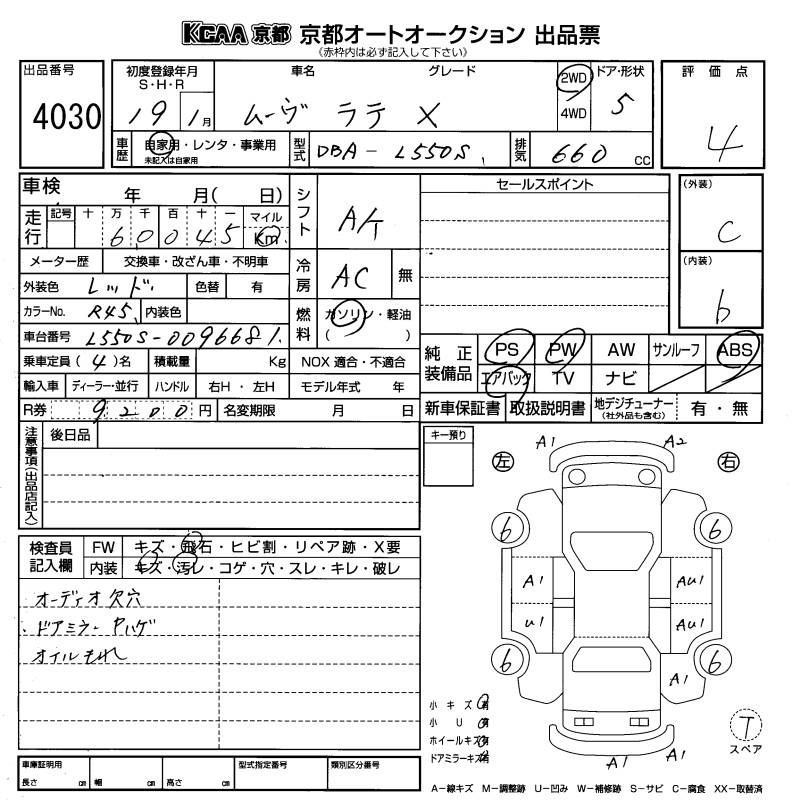 KCAA 京都 京都オートオークション 出品票
(赤枠内は必ず記入して下さい)
出品番号 初度登録年月 車名 グレード 2WD ドア・形状 評価点
S・H・R
4030 19 1月 ムーヴ ラテ X 4WD 5 4
車歴 自家用・レンタ・事業用 型式 DBA-L550S 排気 660 CC
未記入は自家用
車検 年 月( 日) シフト A/T セールスポイント (外装)
走行 記号 十 万 千 百 十 一 マイル
60045 Km C
メーター歴 交換車・改ざん車・不明車 冷房 AC 無 (内装)
外装色 レッド 色替 有 b
カラーNo. R45 内装色 燃料 ガソリン・軽油
車台番号 L550S-0096681 ( )
乗車定員(4)名 積載量 Kg NOX 適合・不適合 純正装備品 PS PW AW サンルーフ ABS
輸入車 ディーラー・並行 ハンドル 右H・左H モデル年式 年 エアバック TV ナビ
R券 9200円 名変期限 月 日 新車保証書 取扱説明書 地デジチューナー (社外品も含む) 有・無
注意事項(出品店記入) 後日品 キー預り
A1 A2
左 右
6 6
検査員記入欄 FW キズ・飛石・ヒビ割・リペア跡・X要
内装 キズ・汚レ・コゲ・穴・スレ・キレ・破レ
A1 AU1
オーディオ欠穴
ドアミラー Pハゲ
U1 AU1
オイルもれ
6 6
A1
小キズ 有
小U 有
ホイールキズ 有
ドアミラーキズ 有
T
スペア
A1 A1
車庫証明用 型式指定番号 類別区分番号
長さ cm 幅 cm 高さ cm
A−線キズ M−調整跡 U−凹み W−補修跡 S−サビ C−腐食 XX−取替済